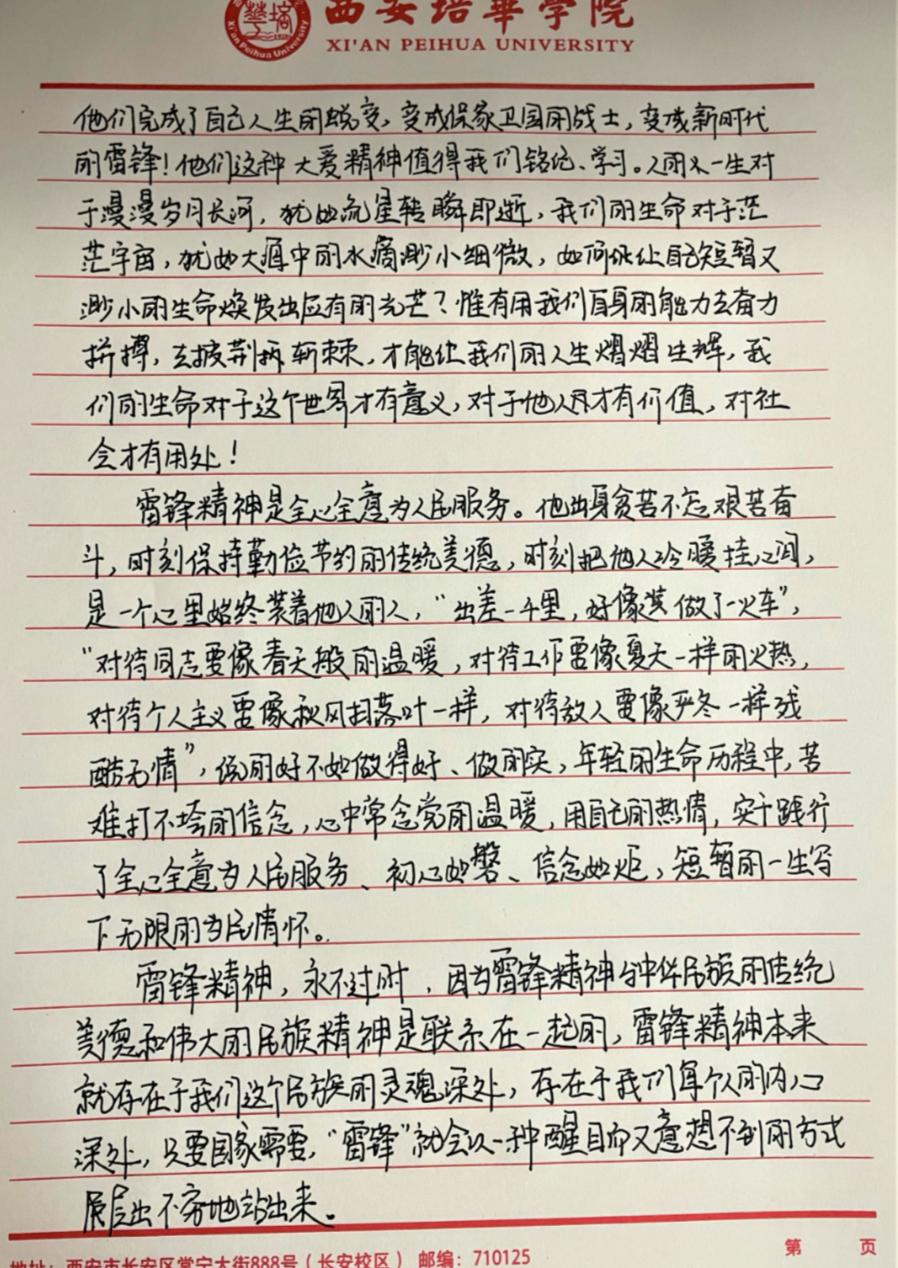 西安培華学院
XI'AN PEIHUA UNIVERSITY
他们完成了自己人生的蜕变，变成保家卫国的战士，变成新时代
的雷锋！他们这种大爱精神值得我们铭记、学习。人的一生对
于漫漫岁月长河，犹如流星转瞬即逝，我们的生命对于茫
茫宇宙，犹如大海中的水滴渺小细微，如何能让自己短暂又
渺小的生命焕发出应有的光芒？惟有用我们自身的能力去奋力
拼搏，去披荆斩棘，才能让我们的人生熠熠生辉，我
们的生命对于这个世界才有意义，对于他人才有价值，对社
会才有用处！
雷锋精神是全心全意为人民服务。他出身贫苦不忘艰苦奋
斗，时刻保持勤俭节约的传统美德，时刻把他人冷暖挂心间，
是一个心里始终装着他人的人，“出差一千里，好像做了一火车”，
“对待同志要像春天般的温暖，对待工作要像夏天一样的火热，
对待个人主义要像秋风扫落叶一样，对待敌人要像严冬一样残
酷无情”，说的好不如做得好、做的实，年轻的生命历程中，苦
难打不垮的信念，心中常念党的温暖，用自己的热情，实干践行
了全心全意为人民服务、初心如磐、信念如炬，短暂的一生写
下无限的为民情怀。
雷锋精神，永不过时，因为雷锋精神与中华民族的传统
美德和伟大的民族精神是联系在一起的，雷锋精神本来
就存在于我们这个民族的灵魂深处，存在于我们每个人的内心
深处，只要国家需要，“雷锋”就会以一种醒目而又意想不到的方式
层出不穷地站出来。
地址：西安市长安区常宁大街888号（长安校区） 邮编：710125
第 页